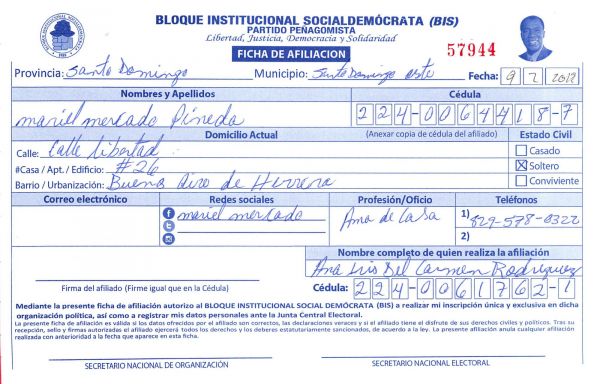 BLOQUE INSTITUCIONAL SOCIALDEMÓCRATA (BIS)
PARTIDO PEÑAGOMISTA
Libertad, Justicia, Democracia y Solidaridad
FICHA DE AFILIACION
57944
Provincia: Santo Domingo Municipio: Santo Domingo este Fecha: 9 7 2018
Nombres y Apellidos Cédula
mariel mercado Pineda 224-0064418-7
Domicilio Actual (Anexar copia de cédula del afiliado) Estado Civil
Calle: Calle libertad Casado
#Casa / Apt. / Edificio: #26 Soltero
Barrio / Urbanización: Buenos Aire de Herrera Conviviente
Correo electrónico Redes sociales Profesión/Oficio Teléfonos
mariel mercado Ama de Casa 1) 829-578-0322
2)
Nombre completo de quien realiza la afiliación
Ana Luis Del Carmen Rodriguez
Firma del afiliado (Firme igual que en la Cédula) Cédula: 224-0061762-1
Mediante la presente ficha de afiliación autorizo al BLOQUE INSTITUCIONAL SOCIAL DEMÓCRATA (BIS) a realizar mi inscripción única y exclusiva en dicha
organización política, así como a registrar mis datos personales ante la Junta Central Electoral.
La presente ficha de afiliación es válida si los datos ofrecidos por el afiliado son correctos, las declaraciones veraces y si el afiliado tiene el disfrute de sus derechos civiles y políticos. Tras su
recepción, sello y firmas autorizadas el afiliado ejercerá todos los derechos y los deberes estatutariamente sancionados, de acuerdo a la ley. La presente afiliación anula cualquier afiliación
realizada con anterioridad a la fecha que aparece en esta ficha.
SECRETARIO NACIONAL DE ORGANIZACIÓN SECRETARIO NACIONAL ELECTORAL